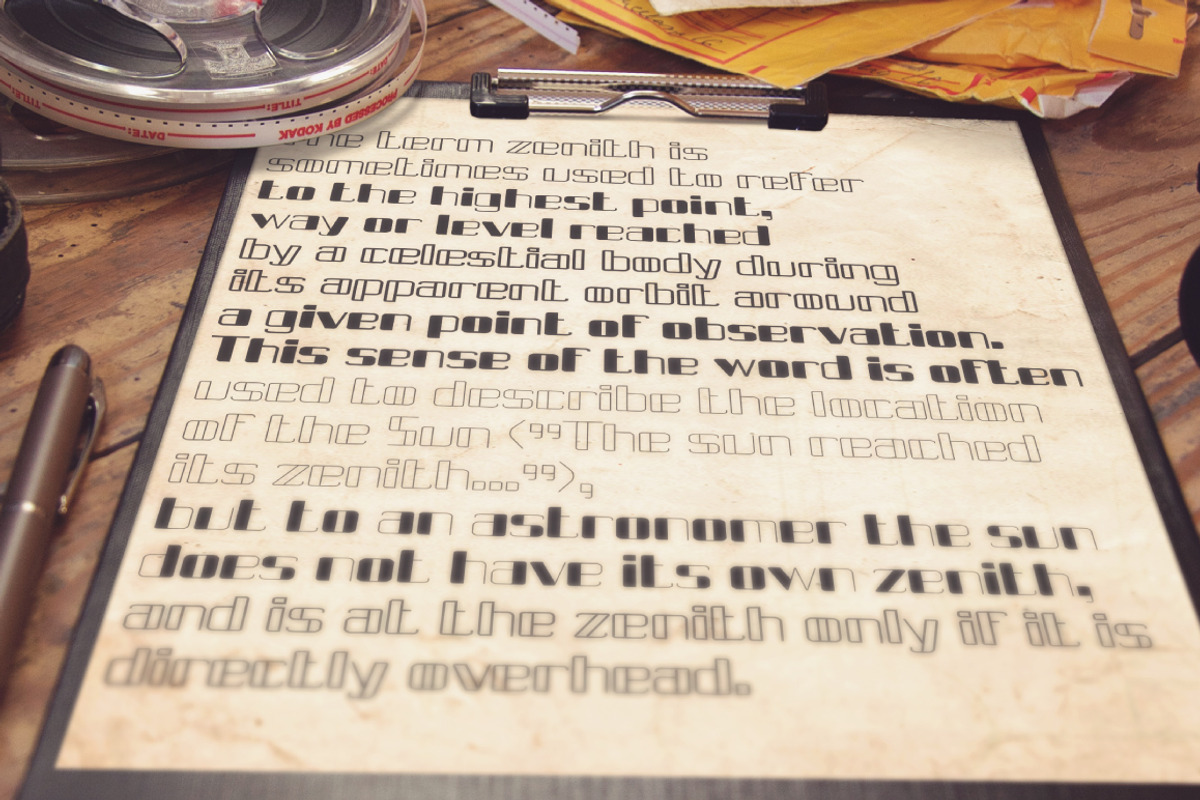 DATE:
TITLE:
DATE:
TITLE:
PROCESSED BY KODAK
The term zenith is
sometimes used to refer
to the highest point,
way or level reached
by a celestial body during
its apparent orbit around
a given point of observation.
This sense of the word is often
used to describe the location
of the Sun ("The sun reached
its zenith..."),
but to an astronomer the sun
does not have its own zenith,
and is at the zenith only if it is
directly overhead.